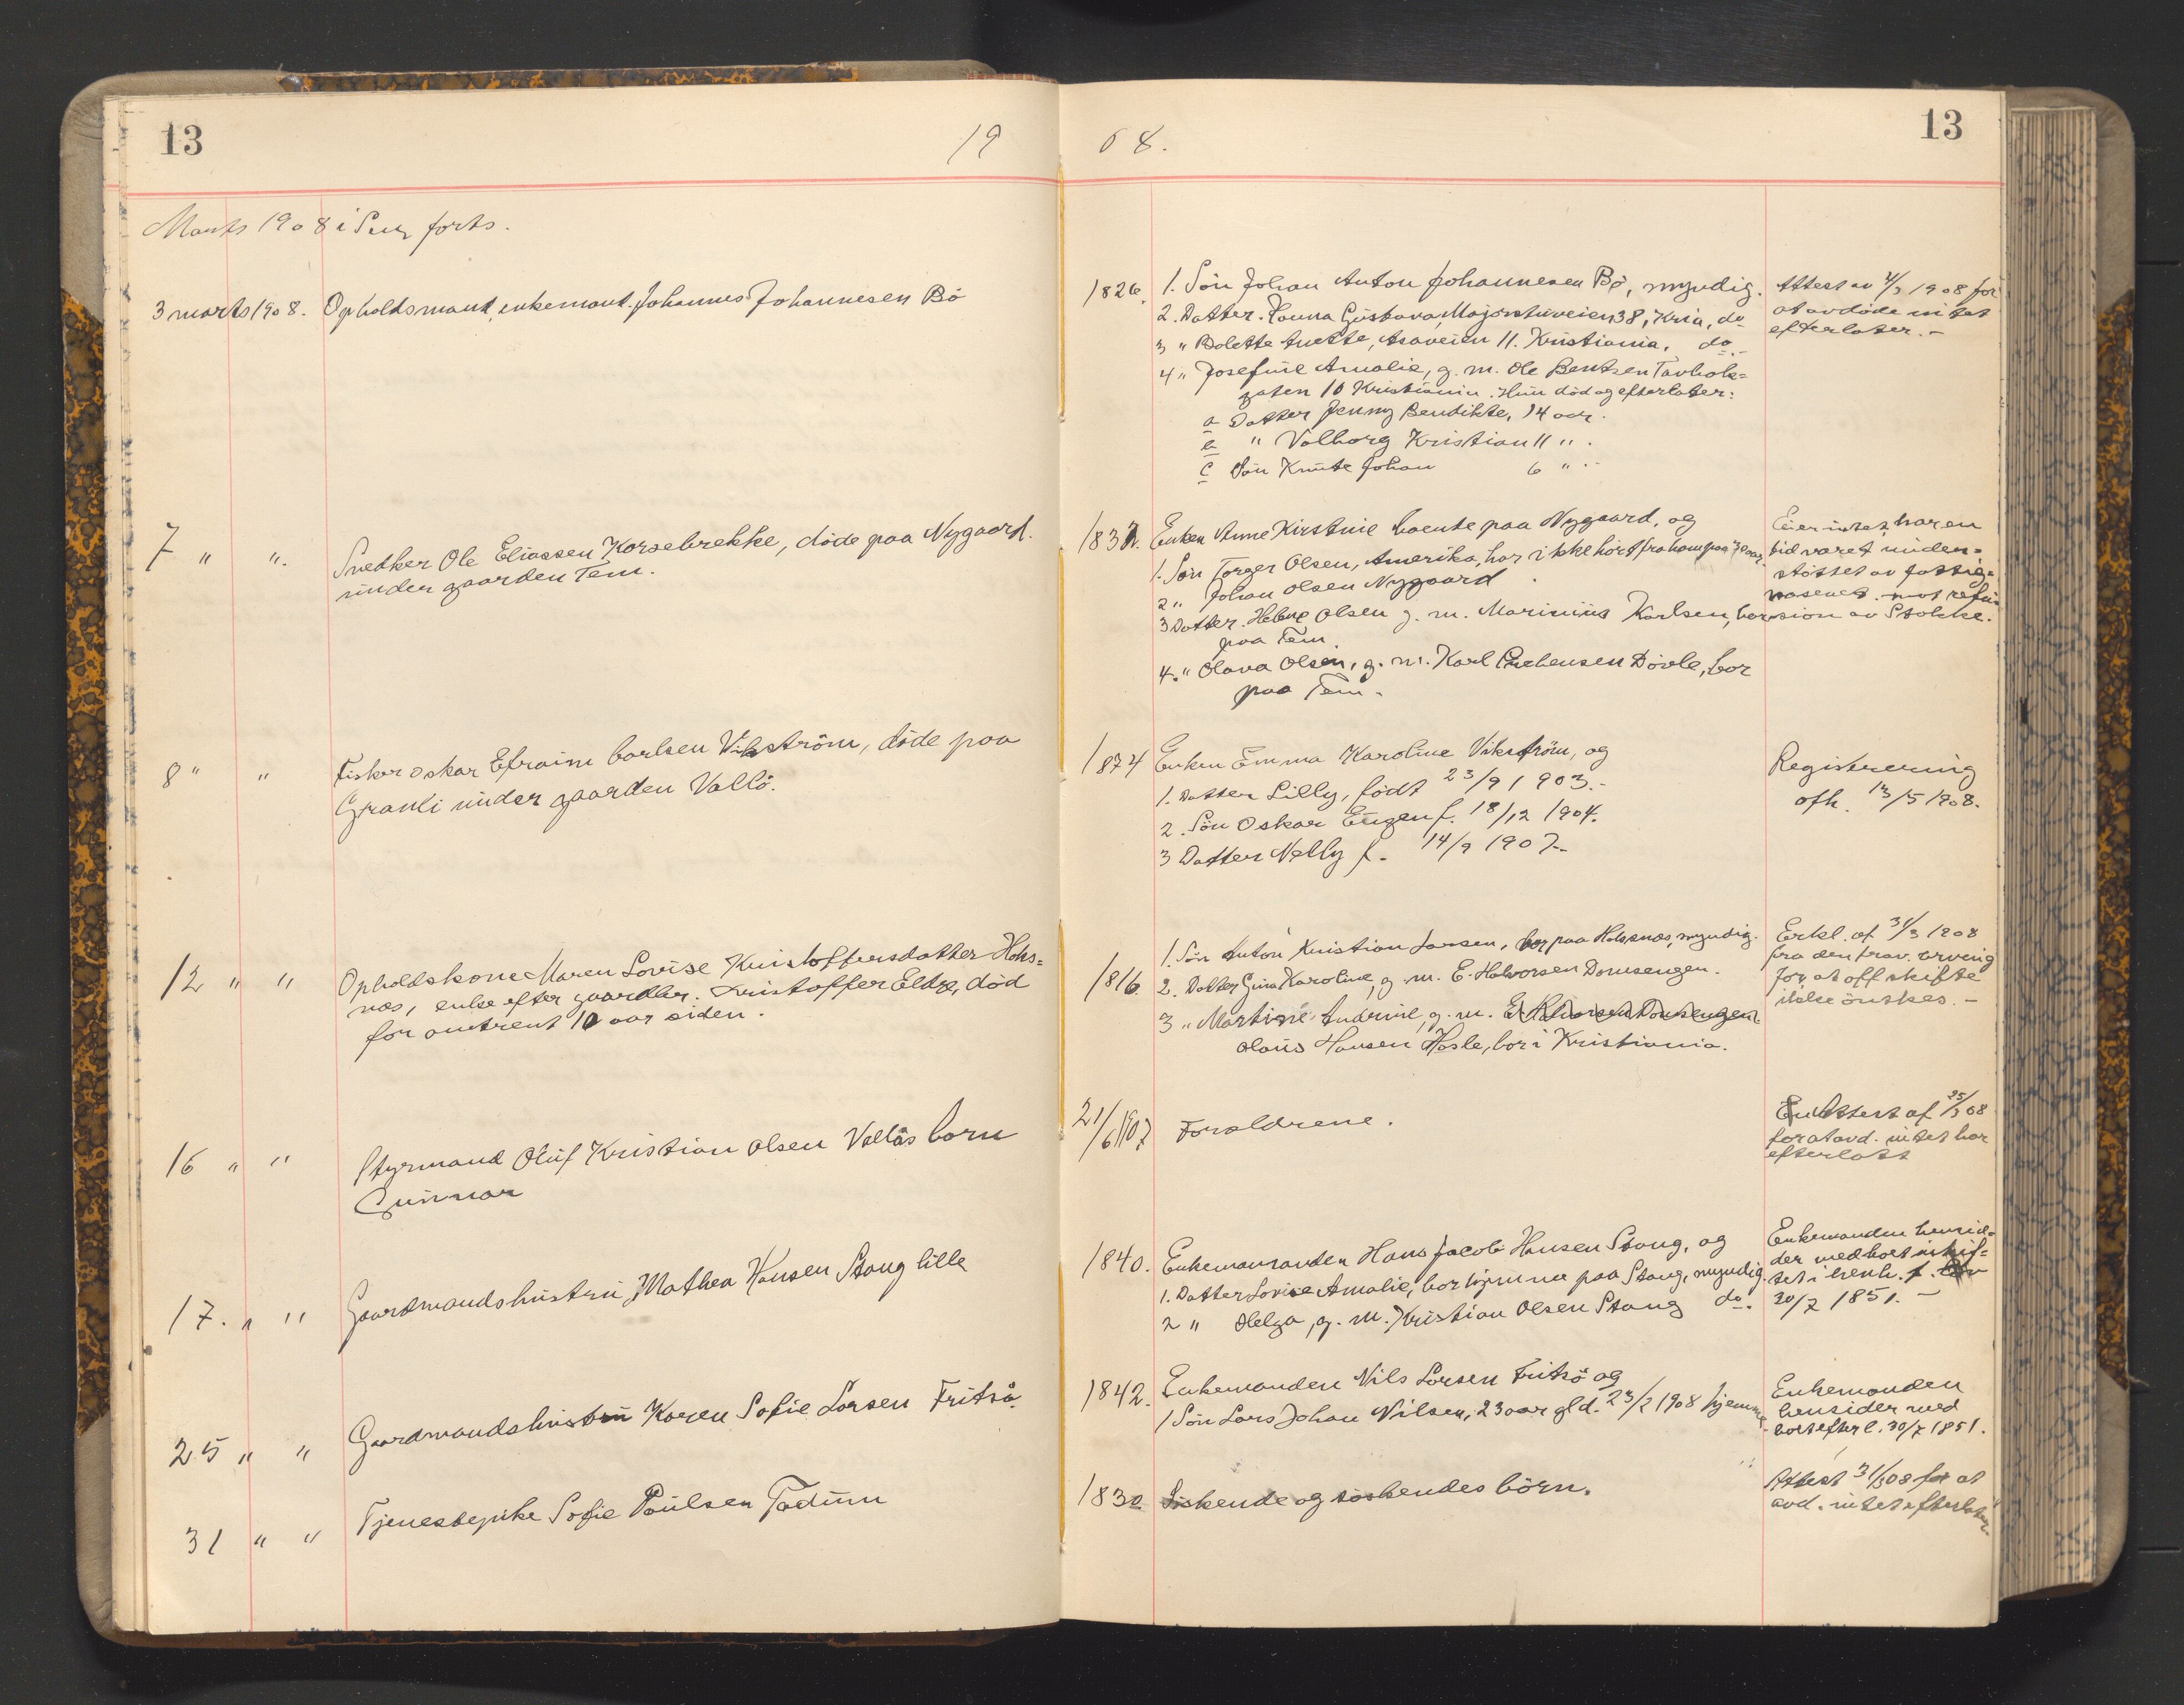 13
19
08.
13
Marts 1908 i Sem forts.
3 marts 1908. Opholdsmand, enkemand Johannes Johannesen Bö
1826. 1. Sön Johan Anton Johannesen Bö, myndig.
2. Datter. Hanna Gustava, Majorstuveien 38, Kria, do
3 " Bolette Anette, Asaveien 11. Kristiania. do.
4 " Josefine Amalie, g. m. Ole Bentzen
gaten 10 Kristiania. Hun död og efterlater:
a Datter Jenny Bendikte, 14 aar.
b " Valborg Kristian 11 " .
c Sön Knute Johan 6 " .
Attest av 4/3 1908 for
at avdöde intet
efterlater. -
7 " ". Snedker Ole Eliassen Korsebrekke, döde paa Nygaard
under gaarden Tem.
1832. Enken Anne Kirstine boende paa Nygaard, og
1. Sön Torger Olsen, Amerika, har ikke hört fra ham paa aar.
2 " Johan Olsen Nygaard
3 Datter. Helene Olsen g. m. Marinius Karlsen, bor
paa Tem
4. " Olava Olsen, g. m. Karl Dövle, bor
paa Tem.
Eier intet, har en
tid været under-
støttet av fattig-
væsenet mot refu-
sion av Stokke.
8 " " Fisker Oskar Efraim Carlsen Vikström, döde paa
Granli under gaarden Vallö.
1874 Enken Emma Karoline Vikström, og
1. Datter Lilly, födt 23/9 1903.-
2. Sön Oskar Eugen f. 18/12 1904.
3 Datter Nelly f. 14/9 1907.-
Registrering
afh. 13/5 1908.
12 " " Opholdskone Maren Lovise Kristoffersdatter Hoks=
næs, enke efter gaardbr. Kristoffer Eldge, död
for omtrent 10 aar siden.
1816. 1. Sön Anton Kristian Larsen, bor paa Hoksnæs, myndig.
2. Datter Gina Karoline, g. m. E. Halvorsen Domsengen.
3 " Martine Andrine, g. m. E. Halvorsen Domsengen
Olaus Hansen Hasle, bor i Kristiania.
Erkl. af 31/3 1908
fra den frav. arving
for, at off skifte
ikke önskes. -
16 " " Styrmand Oluf Kristian Olsen Vallös barn
Gunnar
21/6 1907 Forældrene.
Attest af 25/3 08
for at avd. intet har
efterlatt
17. " " Gaardmandshustru Mathea Hansen Stang lille
1840. Enkemanden Hans Jacob Hansen Stang, og
1. Datter Lovise Amalie, bor hjemme paa Stang, myndig.
2 " Helga, g. m. Kristian Olsen Stang do.
Enkemanden hensid=
der med boet uskif=
tet i henh. t. lov
30/7 1851. -
25 " " Gaardmandshustru Karen Sofie Larsen Fritsö.
1842. Enkemanden Nils Larsen Fritsö og
1 Sön Lars Johan Nilsen, 23 aar gl d. 23/2 1908 hjemme
Enkemanden
hensider med
boet efter l. 30/7 1851.
31 " " Tjenestepike Sofie Paulsen Tadum
1830 Söskende og söskendes börn.
Attest 31/3 08 for at
avd. intet efterlater.